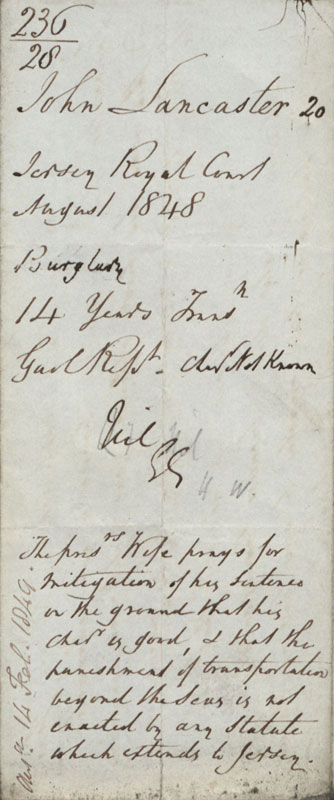 236
28
John Lancaster 20
Jersey Royal Court
August 1848
Burglary
14 Years Transn
Gaol Rept. Charr Not Known
Nil
GG
H W.
The prisrs Wife prays for
mitigation of his sentence
on the ground that his
charr is good, & that the
punishment of transportation
beyond the Seas is not
enacted by any Statute
which extends to Jersey.
Ansd 14 Feb. 1849.